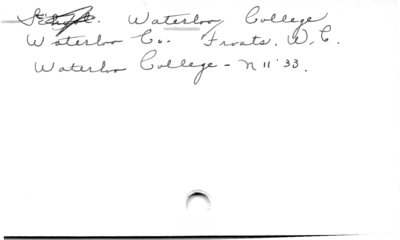 Waterloo College
Waterloo Co. Froats, W. C.
Waterloo College - N 11 '33.